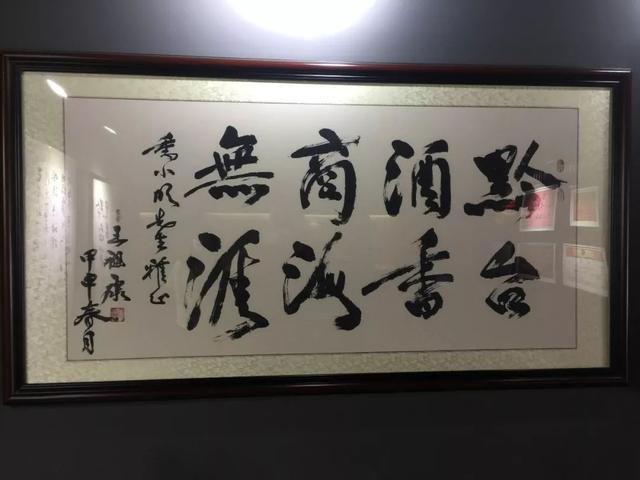 黔台
酒香
商海
無涯
喬小明先生雅正
王祖康
甲申春月